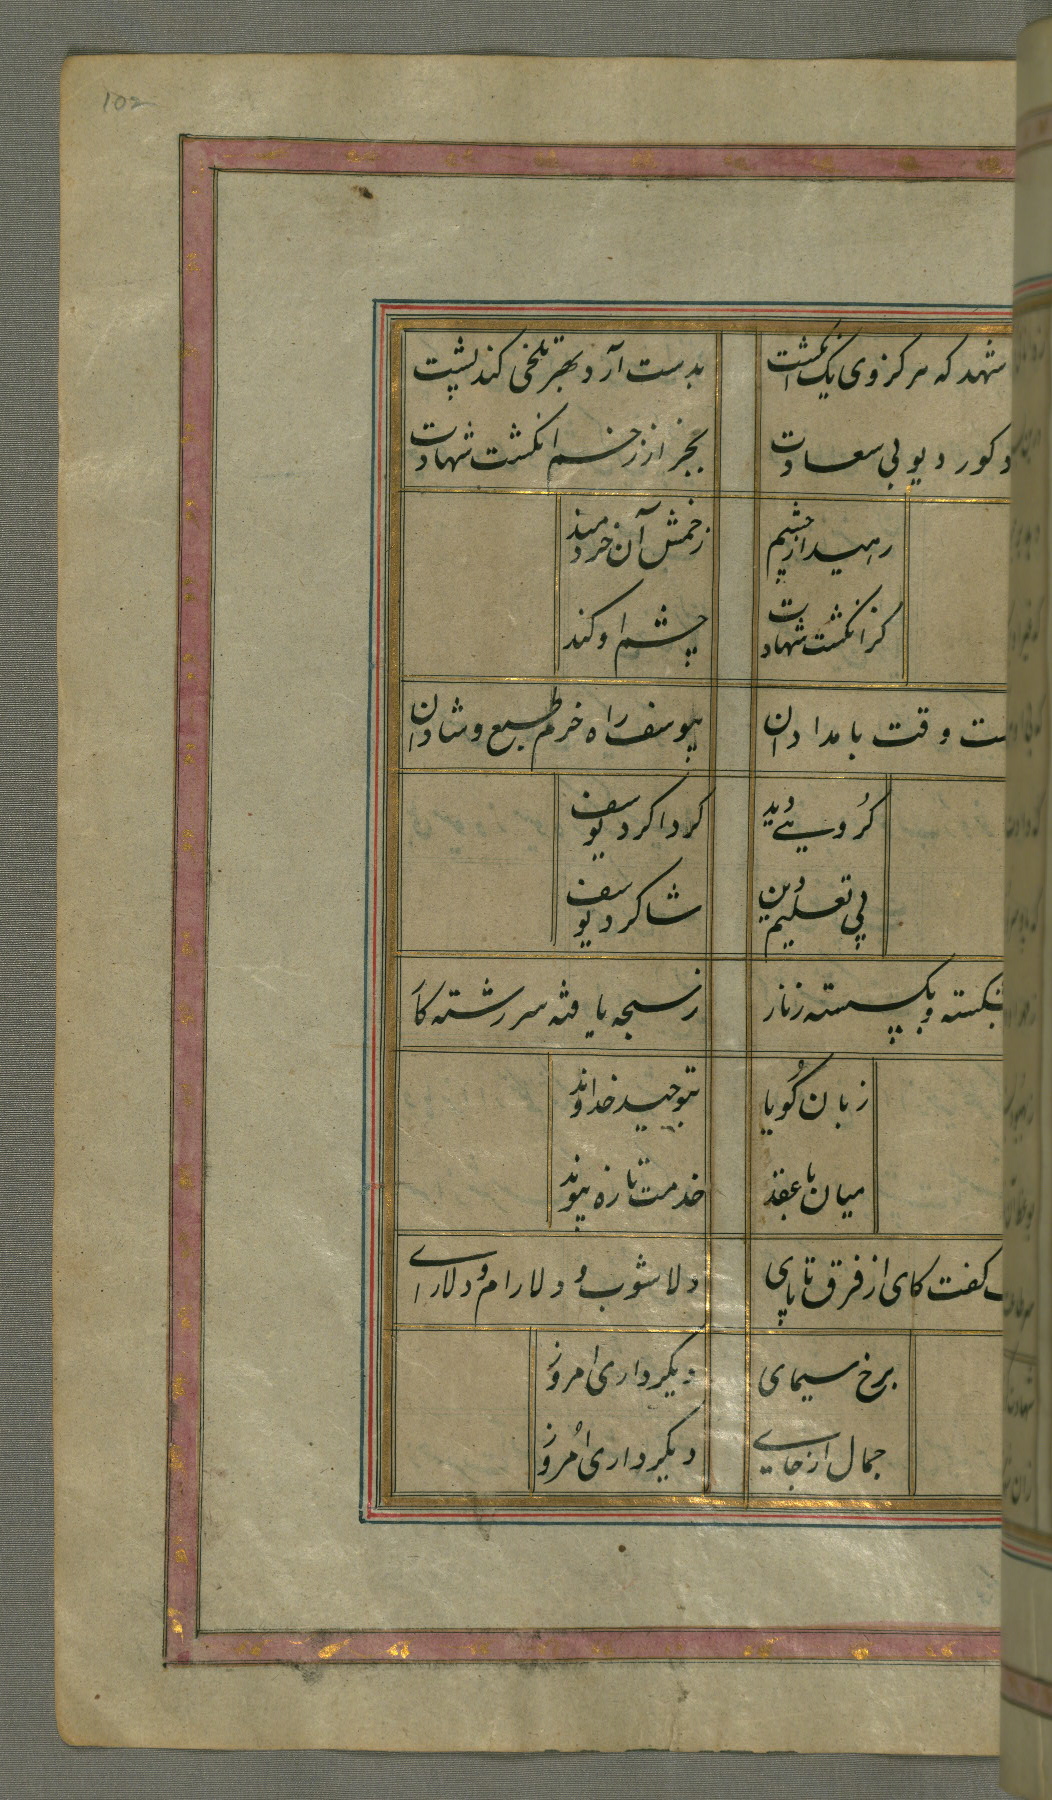 102
شهد که هر کز وی یک انکشت
بدست آرد بهر تلخی کند پشت
کور دیو بی سعادت
بجز از زخم انکشت شهادت
رهید از چشم
زخمش آن خردمند
کز انکشت شهادت
چشم او کند
وقت بامدادان
بیوسف راه خرم طبع و شادان
کروبیی دید
کرداکرد یوسف
پی تعلیم دین
شاکرد یوسف
بشکسته و بکسسته زنار
ز سبحه یافته سررشته کار
زبان کویا
بتوحید خداوند
میان با عقد
خدمت تازه پیوند
کفت کای از فرق تا پای
دلاشوب و دلارام و دلارای
برخ سیمای
دیکر داری امروز
جمال از جایی
دیکر داری امروز